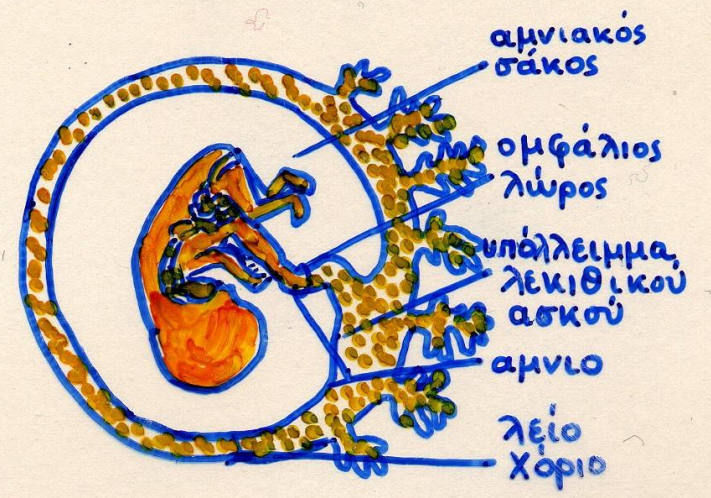 αμνιακός
σάκος
ομφάλιος
λώρος
υπόλλειμμα
λεκιθικού
ασκού
αμνιο
λείο
χόριο